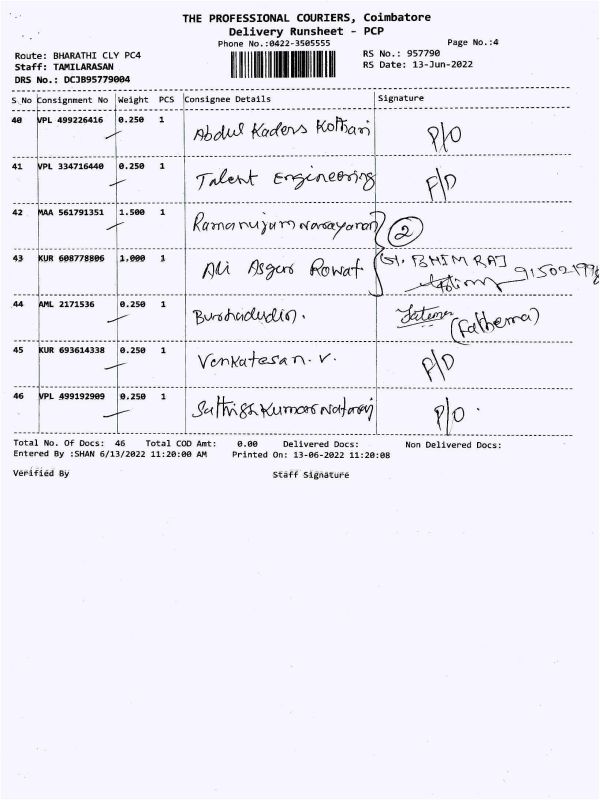 THE PROFESSIONAL COURIERS, Coimbatore
Delivery Runsheet - PCP
Phone No.:0422-3505555
Page No.:4
Route: BHARATHI CLY PC4
RS No.: 957790
Staff: TAMILARASAN
RS Date: 13-Jun-2022
DRS No.: DCJB95779004
S No Consignment No Weight PCS Consignee Details Signature
40 VPL 499226416 0.250 1 Abdul Kaders Kothari P/O
41 VPL 334716440 0.250 1 Talent Engineering P/D
42 MAA 561791351 1.500 1 Ramanujam Narayanan 2
43 KUR 608778806 1.000 1 Ali Asgur Rowat G. BHIM RAJ
44 AML 2171536 0.250 1 Burhadudin. Fatema (Fathema)
45 KUR 693614338 0.250 1 Venkatesan. V. P/D
46 VPL 499192909 0.250 1 Sathish Kumar Nataraj P/O.
Total No. Of Docs: 46 Total COD Amt: 0.00 Delivered Docs: Non Delivered Docs:
Entered By :SHAN 6/13/2022 11:20:00 AM Printed On: 13-06-2022 11:20:08
Verified By Staff Signature